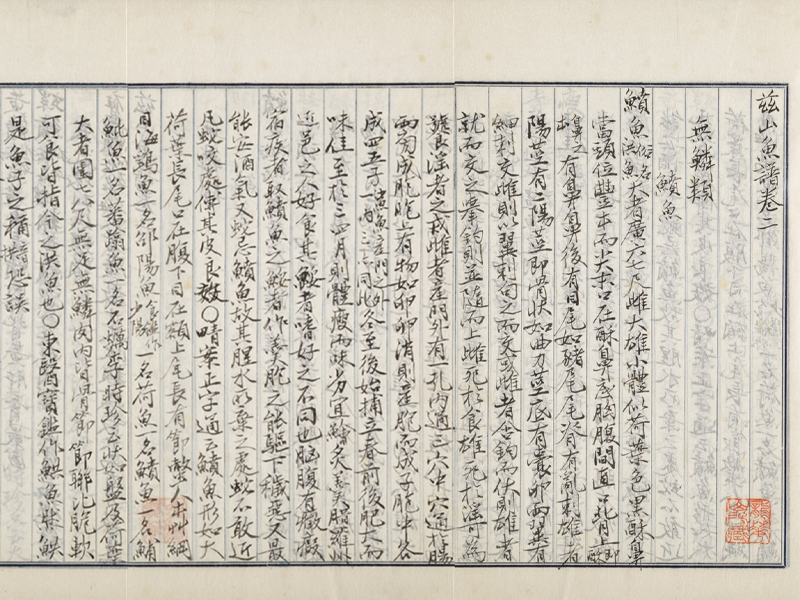 玆山魚譜卷二
無鱗類
鱝魚
鱝魚俗名洪魚大者廣六七尺雌大雄小體似荷葉色黑酥鼻
當頭位豊本而尖末口在酥鼻底胸腹間直口背上卽酥
鼻之有鼻鼻後有目尾如豬尾尾脊有亂刺雄者
陽莖有二陽莖卽骨狀如曲刀莖底有囊卵兩翼有
細刺交雌則以翼刺句之而交或雌者含鉤而伏則雄者
就而交之擧鉤則並隨而上雌死於食雄死於淫可爲
淫者之戒雌者產門外有一孔內通三穴中穴通於腸
兩旁成胞胞上有物如卵卵消則產胞而成子胞中各
成四五子鯊魚產門之外一內三同此冬至後始捕立春前後肥大而
味佳至於三四月則體瘦而味劣宜鱠炙羹腊羅州
近邑之人好食其鮾者嗜好之不同也胸腹有癥瘕
宿疾者取鱝魚之鮾者作羹飽之能驅下穢惡又最
能安酒氣又蛇忌鱝魚故其腥水所棄之處蛇不敢近
凡蛇咬處傅其皮良效〇晴案正字通云鱝魚形如大
荷葉長尾口在腹下目在額上尾長有節螫人本艸綱
目海鷂魚一名邵陽魚食鑑作少陽一名荷魚一名鱝魚一名鯆
魮魚一名蕃踏魚一名石蠣李時珍云狀如盤及荷葉
大者圍七八尺無足無鱗肉內皆骨節節聯比脆軟
可食皆指今之洪魚也〇東醫寶鑑作䱋魚然䱋
是魚子之稱恐誤